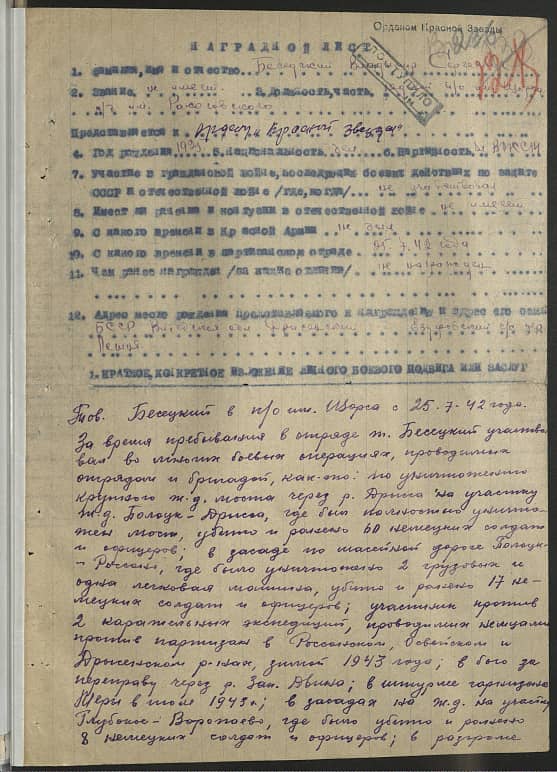 Орденом Красной Звезды
НАГРАДНОЙ ЛИСТ
1. Фамилия, имя и отчество Бесецкий Владимир
2. Звание не имеет 3. Должность, часть п/о
им. Рокоссовского
Представляется к Ордену "Красной Звезды"
4. Год рождения 5. Национальность бел. 6. Партийность чл. ВЛКСМ
7. Участие в гражданской войне, последующих боевых действиях по защите
СССР и отечественной войне /где, когда/ не участвовал
8. Имеет ли ранения и контузии в отечественной войне не имеет
9. С какого времени в Красной Армии не был
10. С какого времени в партизанском отряде 25.7.42 года
11. Чем ранее награжден /за какие отличия/ не награжден
12. Адрес место рождения представляемого к награждению и адрес его семьи
БССР Витебская обл. Дрисенский с/с д.
1. КРАТКОЕ, КОНКРЕТНОЕ ИЗЛОЖЕНИЕ ЛИЧНОГО БОЕВОГО ПОДВИГА ИЛИ ЗАСЛУГ
Тов. Бесецкий в п/о им. Щорса с 25.7-42 года.
За время пребывания в отряде т. Бесецкий участво-
вал во многих боевых операциях, проводимых
отрядом и бригадой, как-то: по уничтожению
крупного ж.д. моста через р. Дрисса на участке
ж.д. Полоцк-Дрисса, где был полностью уничто-
жен мост, убито и ранено 60 немецких солдат
и офицеров; в засаде по шоссейной дороге Полоцк-
-Россоны, где было уничтожено 2 грузовых и
одна легковая машина, убито и ранено 17 не-
мецких солдат и офицеров; участник против
2 карательных экспедиций, проводимых немцами
против партизан в Россонском, Освейском и
Дрисенском р-нах, зимой 1943 года; в бою за
переправу через р. Зап. Двина; в штурме гарнизона
в июле 1943 г.; в засадах на ж.д. на участке
Глубокое-Воропаево, где было убито и ранено
8 немецких солдат и офицеров; в разгроме